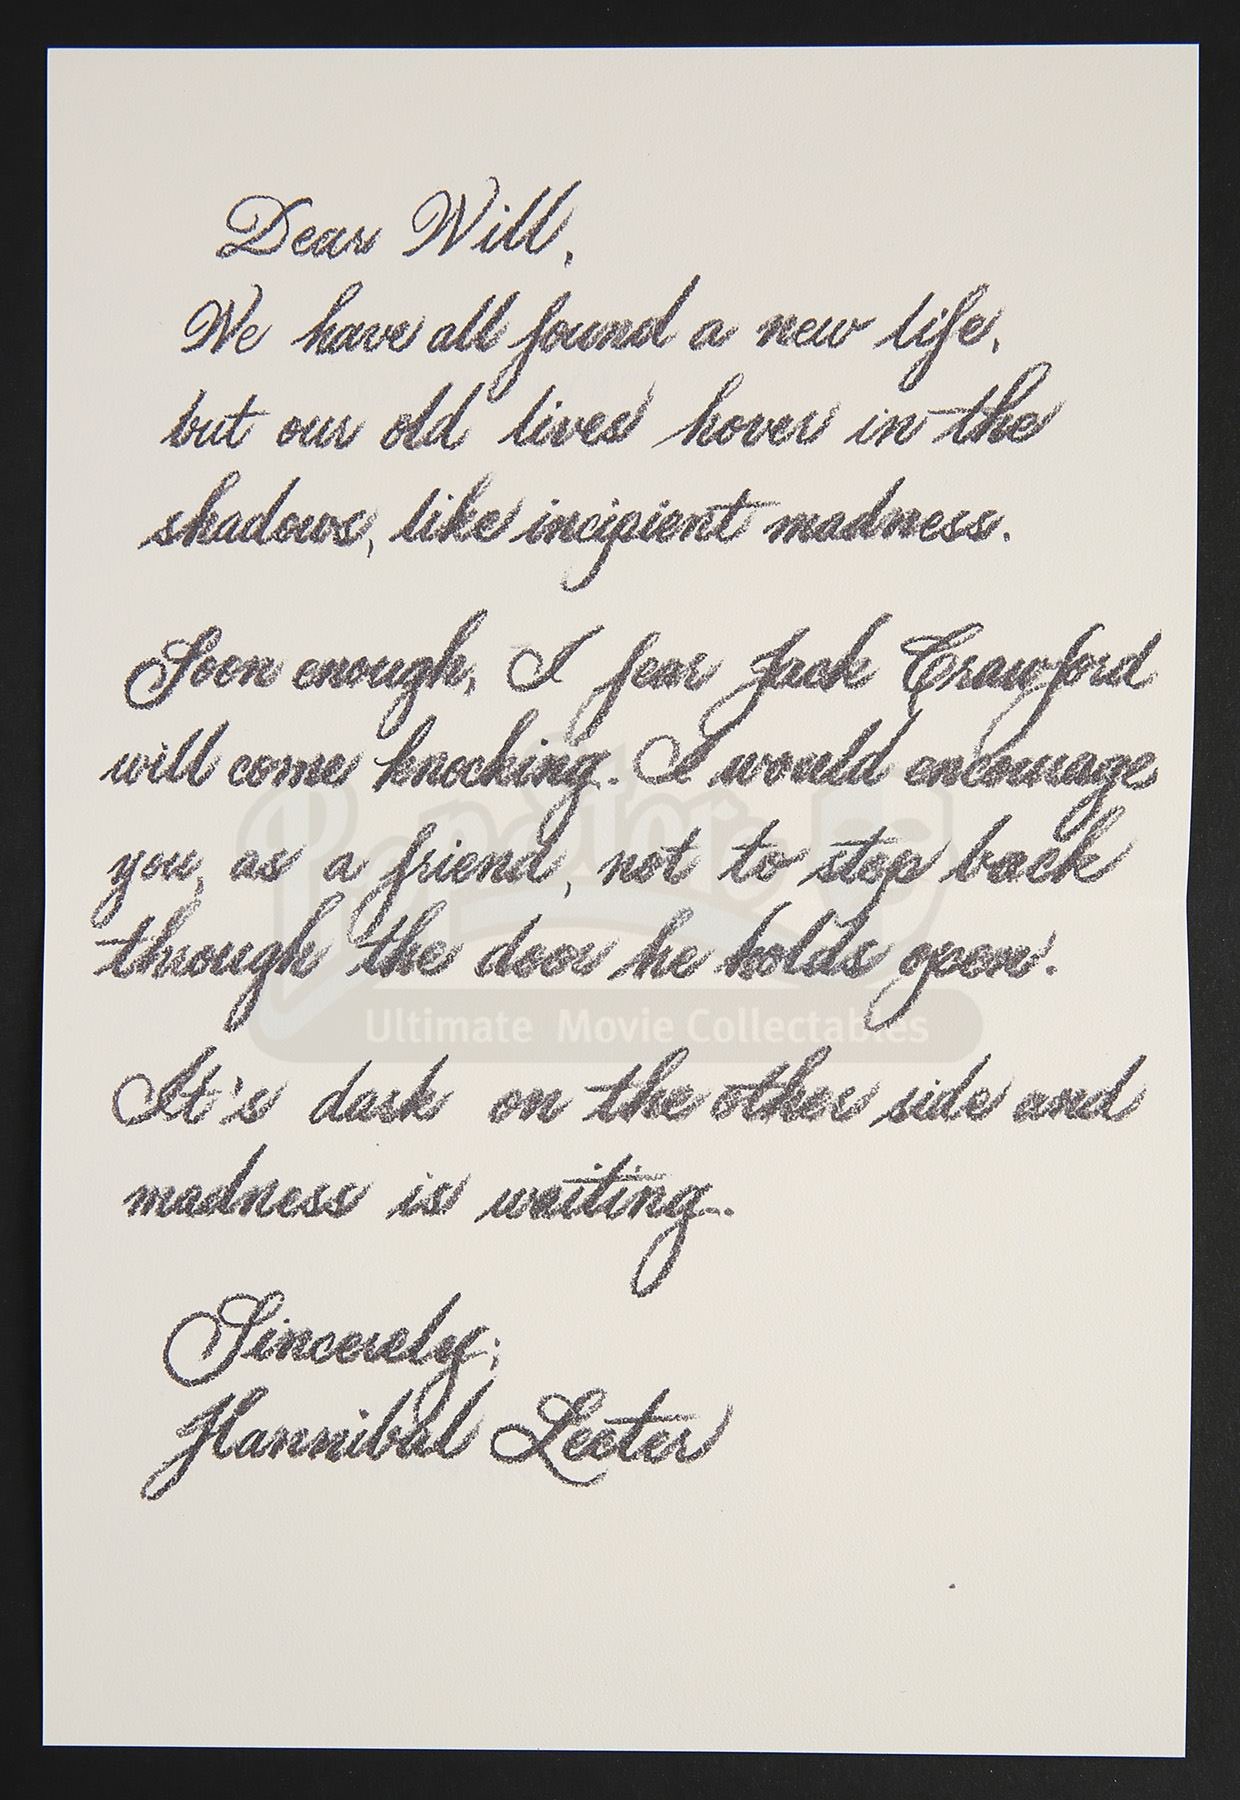 Dear Will,
We have all found a new life,
but our old lives hover in the
shadows, like incipient madness.
Soon enough, I fear Jack Crawford
will come knocking. I would encourage
you, as a friend, not to step back
through the door he holds open.
It's dark on the other side and
madness is waiting...
Sincerely,
Hannibal Lecter
PropStore
Ultimate Movie Collectables